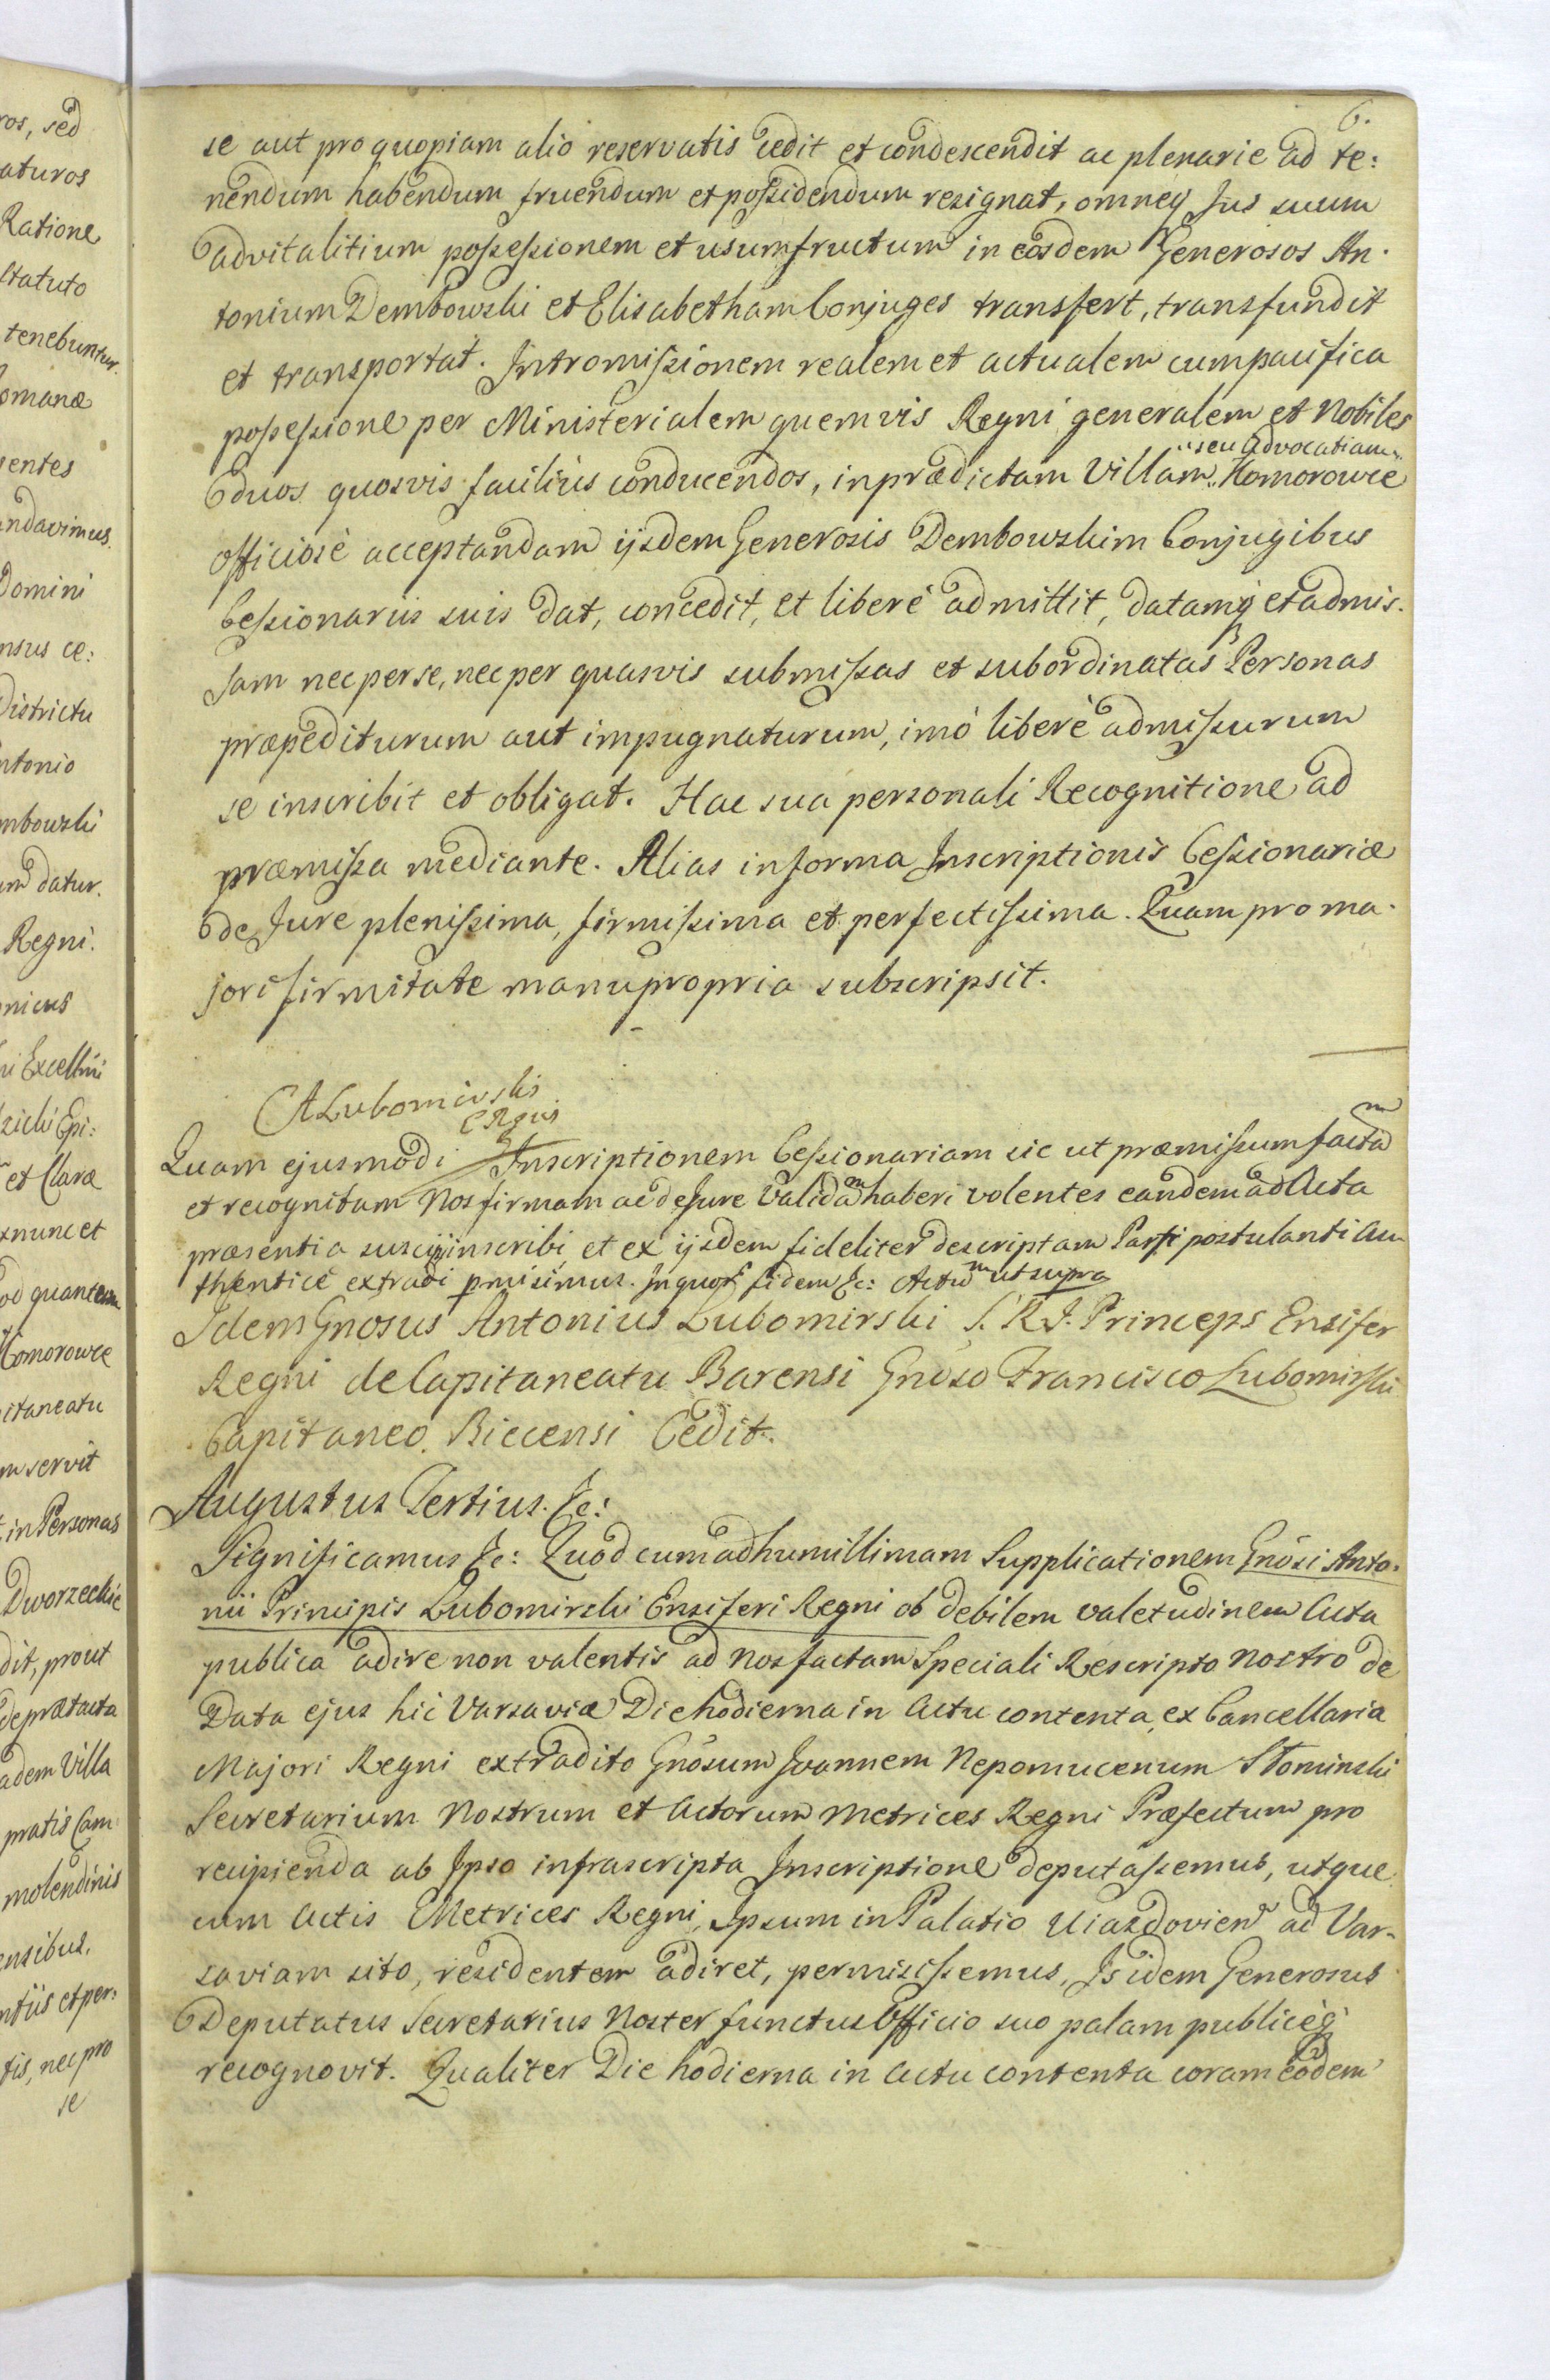 6.
se aut pro quopiam alio reservatis cedit et condescendit ac plenarie ad te:
nendum habendum fruendum et possidendum resignat, omneq Jus suum
advitalitium possessionem et usumfructum in eosdem Generosos An-
tonium Dembowski et Elisabetham Conjuges transfert, transfundit
et transportat. Intromissionem realem et actualem cum pacifica
possessione per Ministerialem quemvis Regni generalem et Nobiles
duos quosvis facilius conducendos, in prædictam Villam "seu Advocatiam" Komorowce
officiose acceptandam ijsdem Generosis Dembowskim Conjugibus
Cessionariis suis dat, concedit, et liberè admittit, datamq et admis-
sam nec per se, nec per quasvis submissas et subordinatas Personas
præpediturum aut impugnaturum, imò liberè admissurum
se inscribit et obligat. Hac sua personali Recognitione ad
præmissa mediante. Alias in forma Inscriptionis Cessionariæ
de Jure plenissima, firmissima et perfectissima. Quam pro ma-
jori firmitate manu propria subscripsit.
A Lubomirski
Quam ejusmodi Inscriptionem Cessionariam sic ut præmissum factam
et recognitam Nos firmam ac de Jure validam haberi volentes eandem ad Acta
præsentia suscipi inscribi, et ex ijsdem fideliter descriptam Parti postulanti au
thenticè extradi pmisimus. In quor fidem &c: Actum ut supra
Idem Gnosus Antonius Lubomirski S. R. I. Princeps Ensifer
Regni de Capitaneatu Barensi Gnoso Francisco Lubomirski
Capitaneo Biecensi Cedit.
Augustus Tertius. &c:
Significamus &c: Quod cum ad humillimam Supplicationem Gnosi Anto-
nii Principis Lubomirski Ensiferi Regni ob debilem valetudinem Acta
publica adire non valentis ad Nos factam Speciali Rescripto Nostro de
Data ejus hic Varsaviæ Die hodierna in Actu contenta, ex Cancellaria
Majori Regni extradito Gnosum Joannem Nepomucenum Słominski
Secretarium Nostrum et Actorum Metrices Regni Præfectum pro
recipienda ab Ipso infrascripta Inscriptione deputassemus, utque
cum Actis Metrices Regni, Ipsum in Palatio Uiazdovien ad Var-
saviam sito, residentem adiret, permisissemus, Is idem Generosus
Deputatus Secretarius Noster functus Officio suo palam publiceq
recognovit. Qualiter Die hodierna in Actu contenta coram eodem